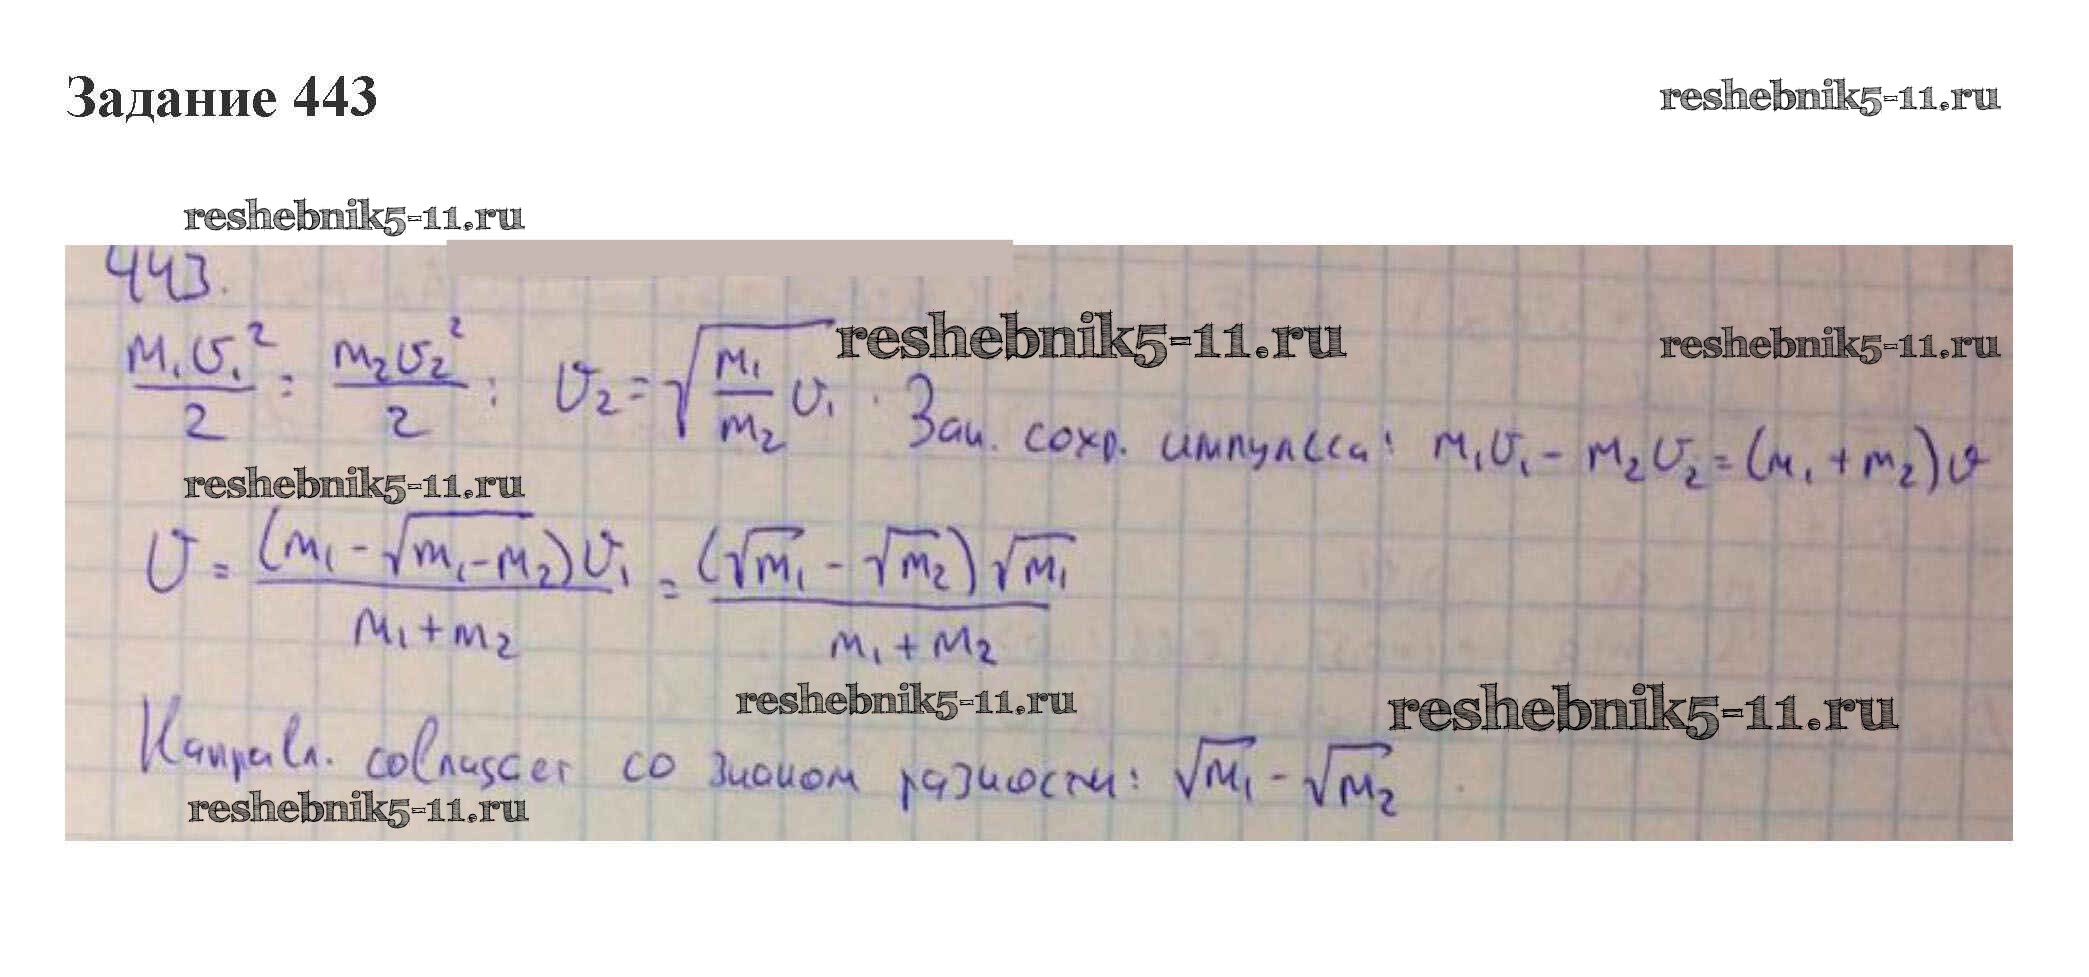 Задание 443
reshebnik5-11.ru
reshebnik5-11.ru
443.
m₁υ₁²/2 = m₂υ₂²/2 ; υ₂ = √(m₁/m₂) υ₁ . Зак. сохр. импульса: m₁υ₁ - m₂υ₂ = (m₁ + m₂)υ
reshebnik5-11.ru
reshebnik5-11.ru
reshebnik5-11.ru
υ = (m₁ - √(m₁-m₂))υ₁/(m₁ + m₂) = (√m₁ - √m₂)√m₁/(m₁ + m₂)
reshebnik5-11.ru
reshebnik5-11.ru
Направл. совпадает со знаком разности: √m₁ - √m₂ .
reshebnik5-11.ru